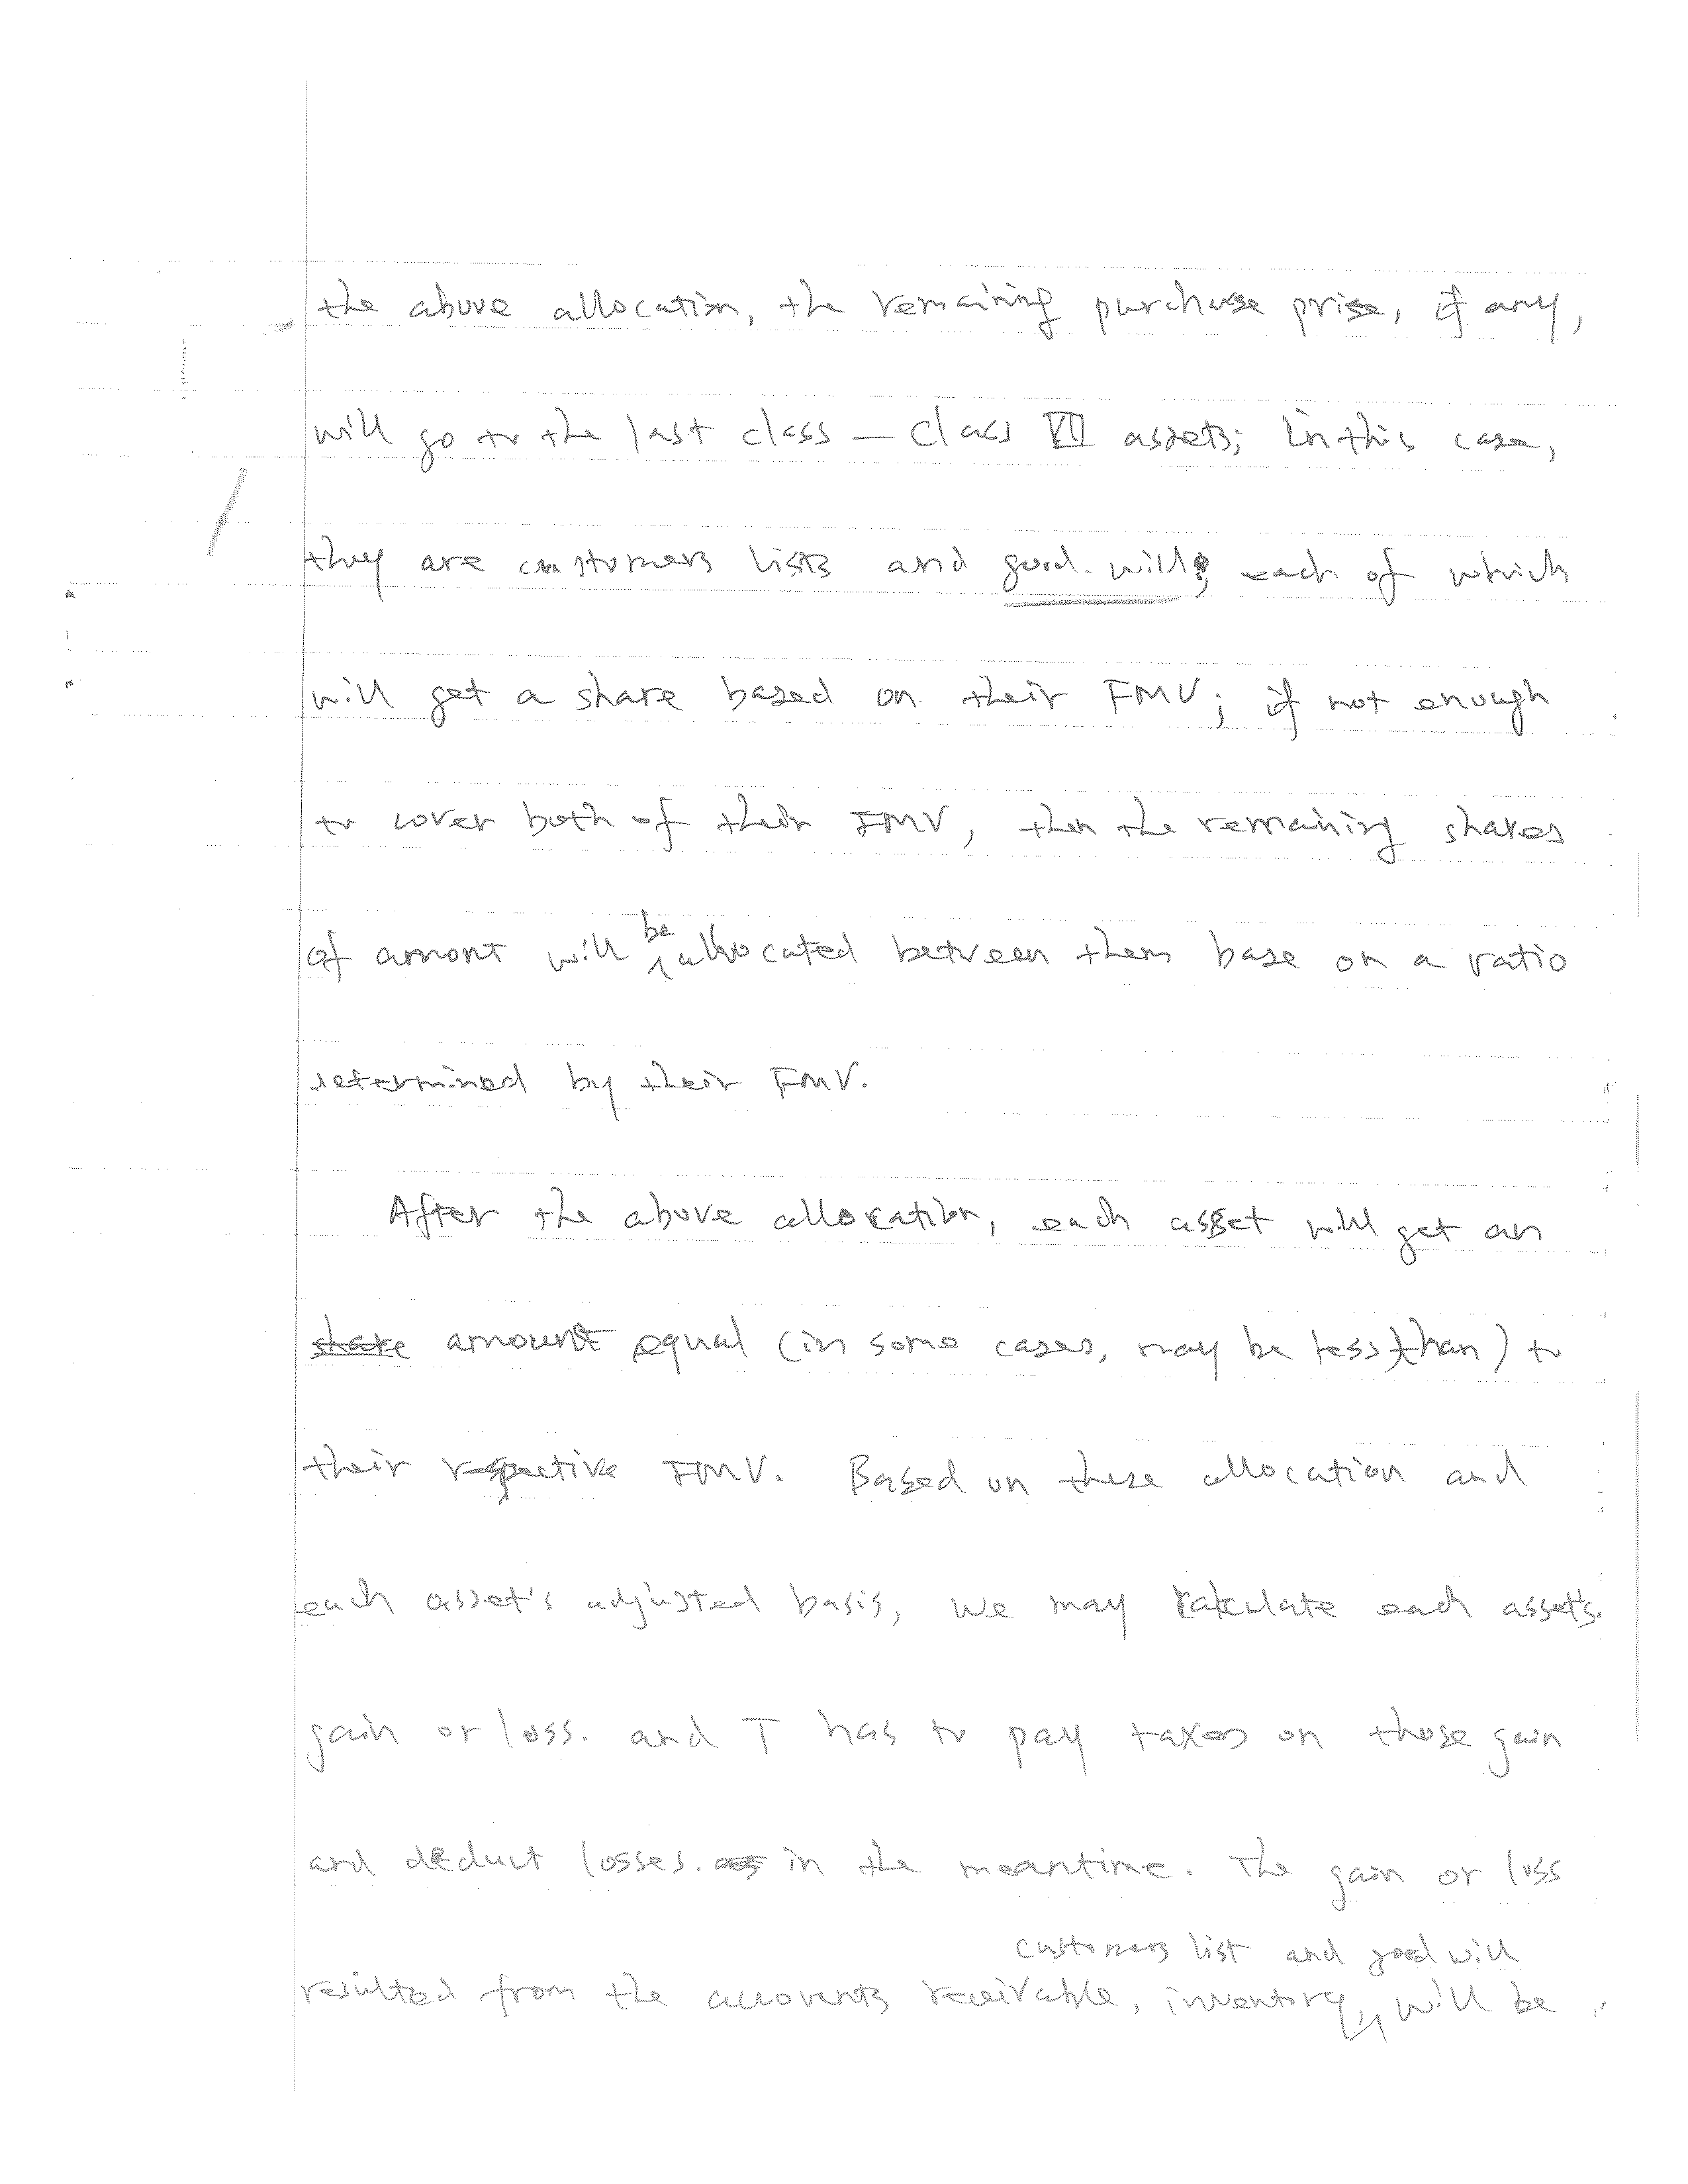 the above allocation, the remaining purchase prise, if any,
will go to the last class — Class VII assets; in this case,
they are customers lists and good will; each of which
will get a share based on their FMV; if not enough
to cover both of their FMV, then the remaining shares
of amont will be allocated between them base on a ratio
determined by their FMV.
After the above allocation, each asset will get an
share amount equal (in some cases, may be less than) to
their respective FMV. Based on these allocation and
each asset's adjusted basis, we may calculate each asset's
gain or loss. and T has to pay taxes on those gain
and deduct losses. in the meantime. The gain or loss
customers list and good will
resulted from the accounts receivable, inventory, will be